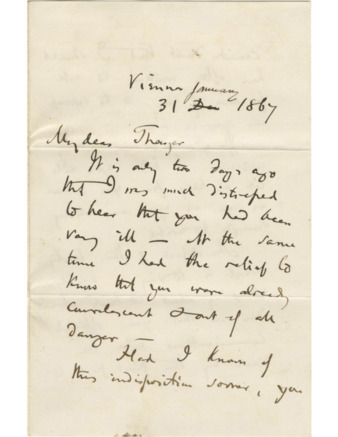 Vienna January
31 Dec 1867
My dear Thayer
It is only two days ago
that I was much distressed
to hear that you had been
very ill — At the same
time I had the relief to
know that you were already
convalescent & out of all
danger —
Had I known of
this indisposition sooner, you